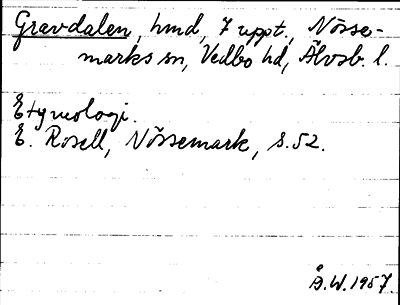 Gravdalen, hmd, 7 uppt., Nösse-
marks sn, Vedbo hd, Älvsb. l.
Etymologi.
E. Rosell, Nössemark, s. 52.
Å.W. 1957.